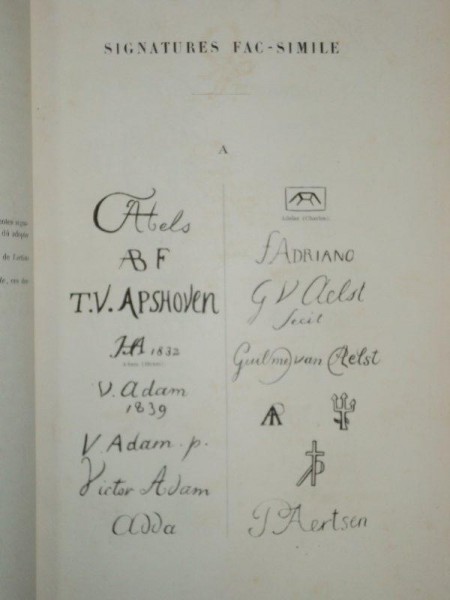 SIGNATURES FAC-SIMILE
A
Abels
AB F
T.V. APSHOVEN
JA 1832
V. Adam
1839
V. Adam. p.
Victor Adam
Adda
f ADRIANO
G V Aelst
fecit
Guilmo van Aelst
AR
P Aertsen